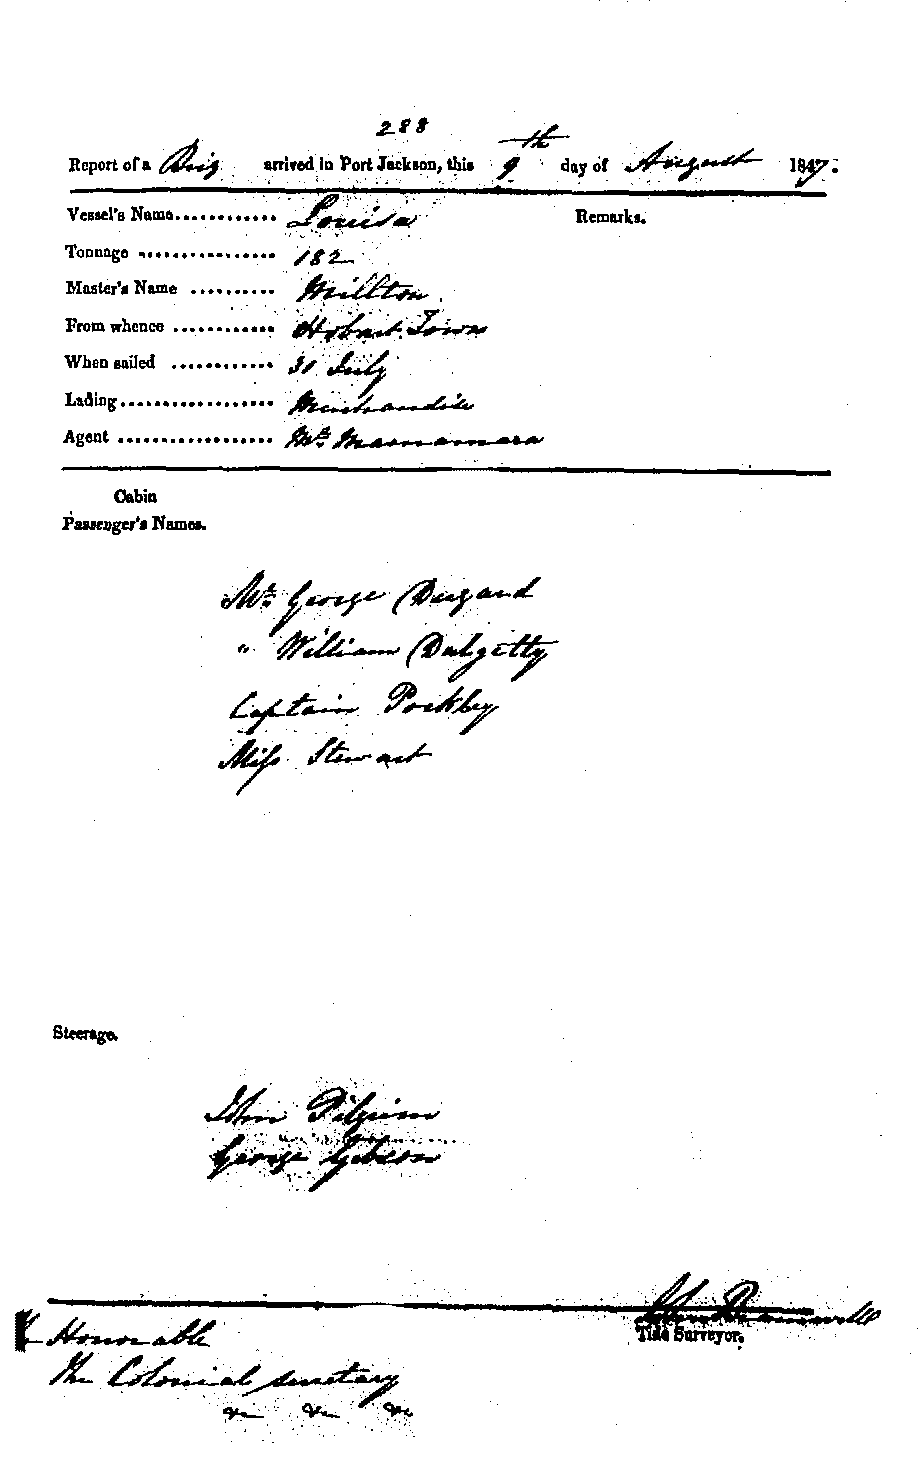 288
Report of a Brig arrived in Port Jackson, this 9th day of August 1847.
Vessel's Name............ Louisa Remarks.
Tonnage ................ 182
Master's Name .......... Millton
From whence ............ Hobart Town
When sailed ............ 31 July
Lading.................. Merchandise
Agent .................. Mr Macnamara
Cabin
Passenger's Names.
Mr George Dugand
" William Dalgetty
Captain Pockley
Miss Stewart
Steerage.
John Pilgrim
George Gibson
John
Tide Surveyor.
Honorable
The Colonial Secretary